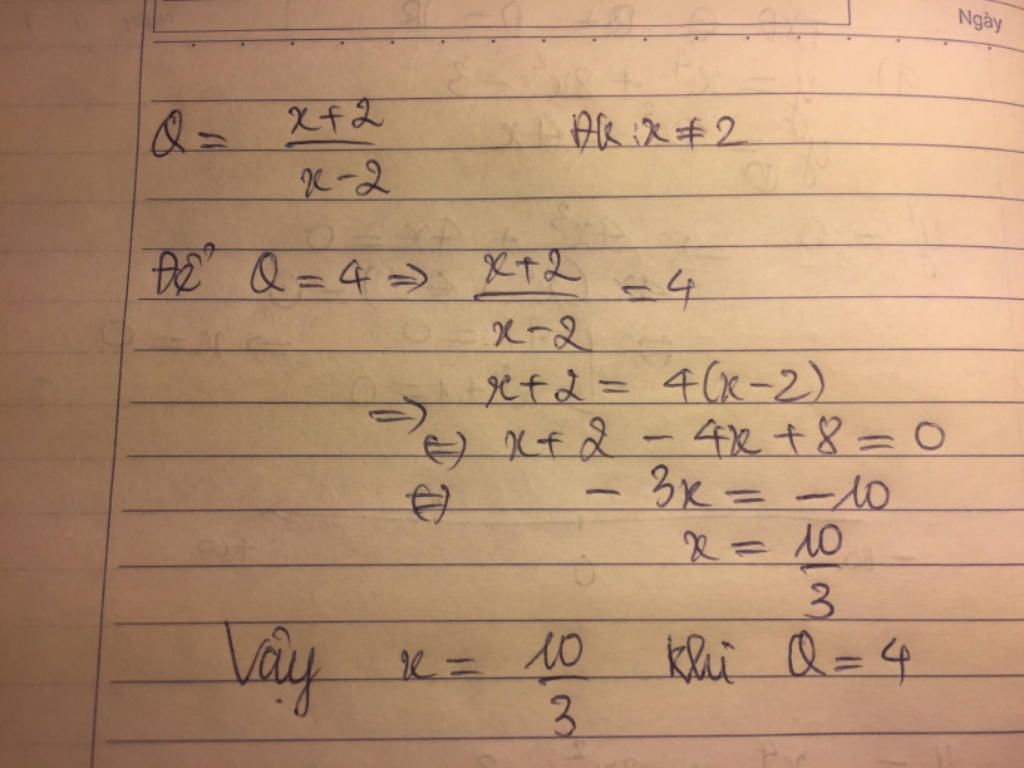 Ngày
Q = \frac{x+2}{x-2} ĐK: x ≠ 2
Để Q = 4 => \frac{x+2}{x-2} = 4
=> x+2 = 4(x-2)
<=> x+2 - 4x + 8 = 0
<=> - 3x = -10
x = \frac{10}{3}
Vậy x = \frac{10}{3} khi Q = 4